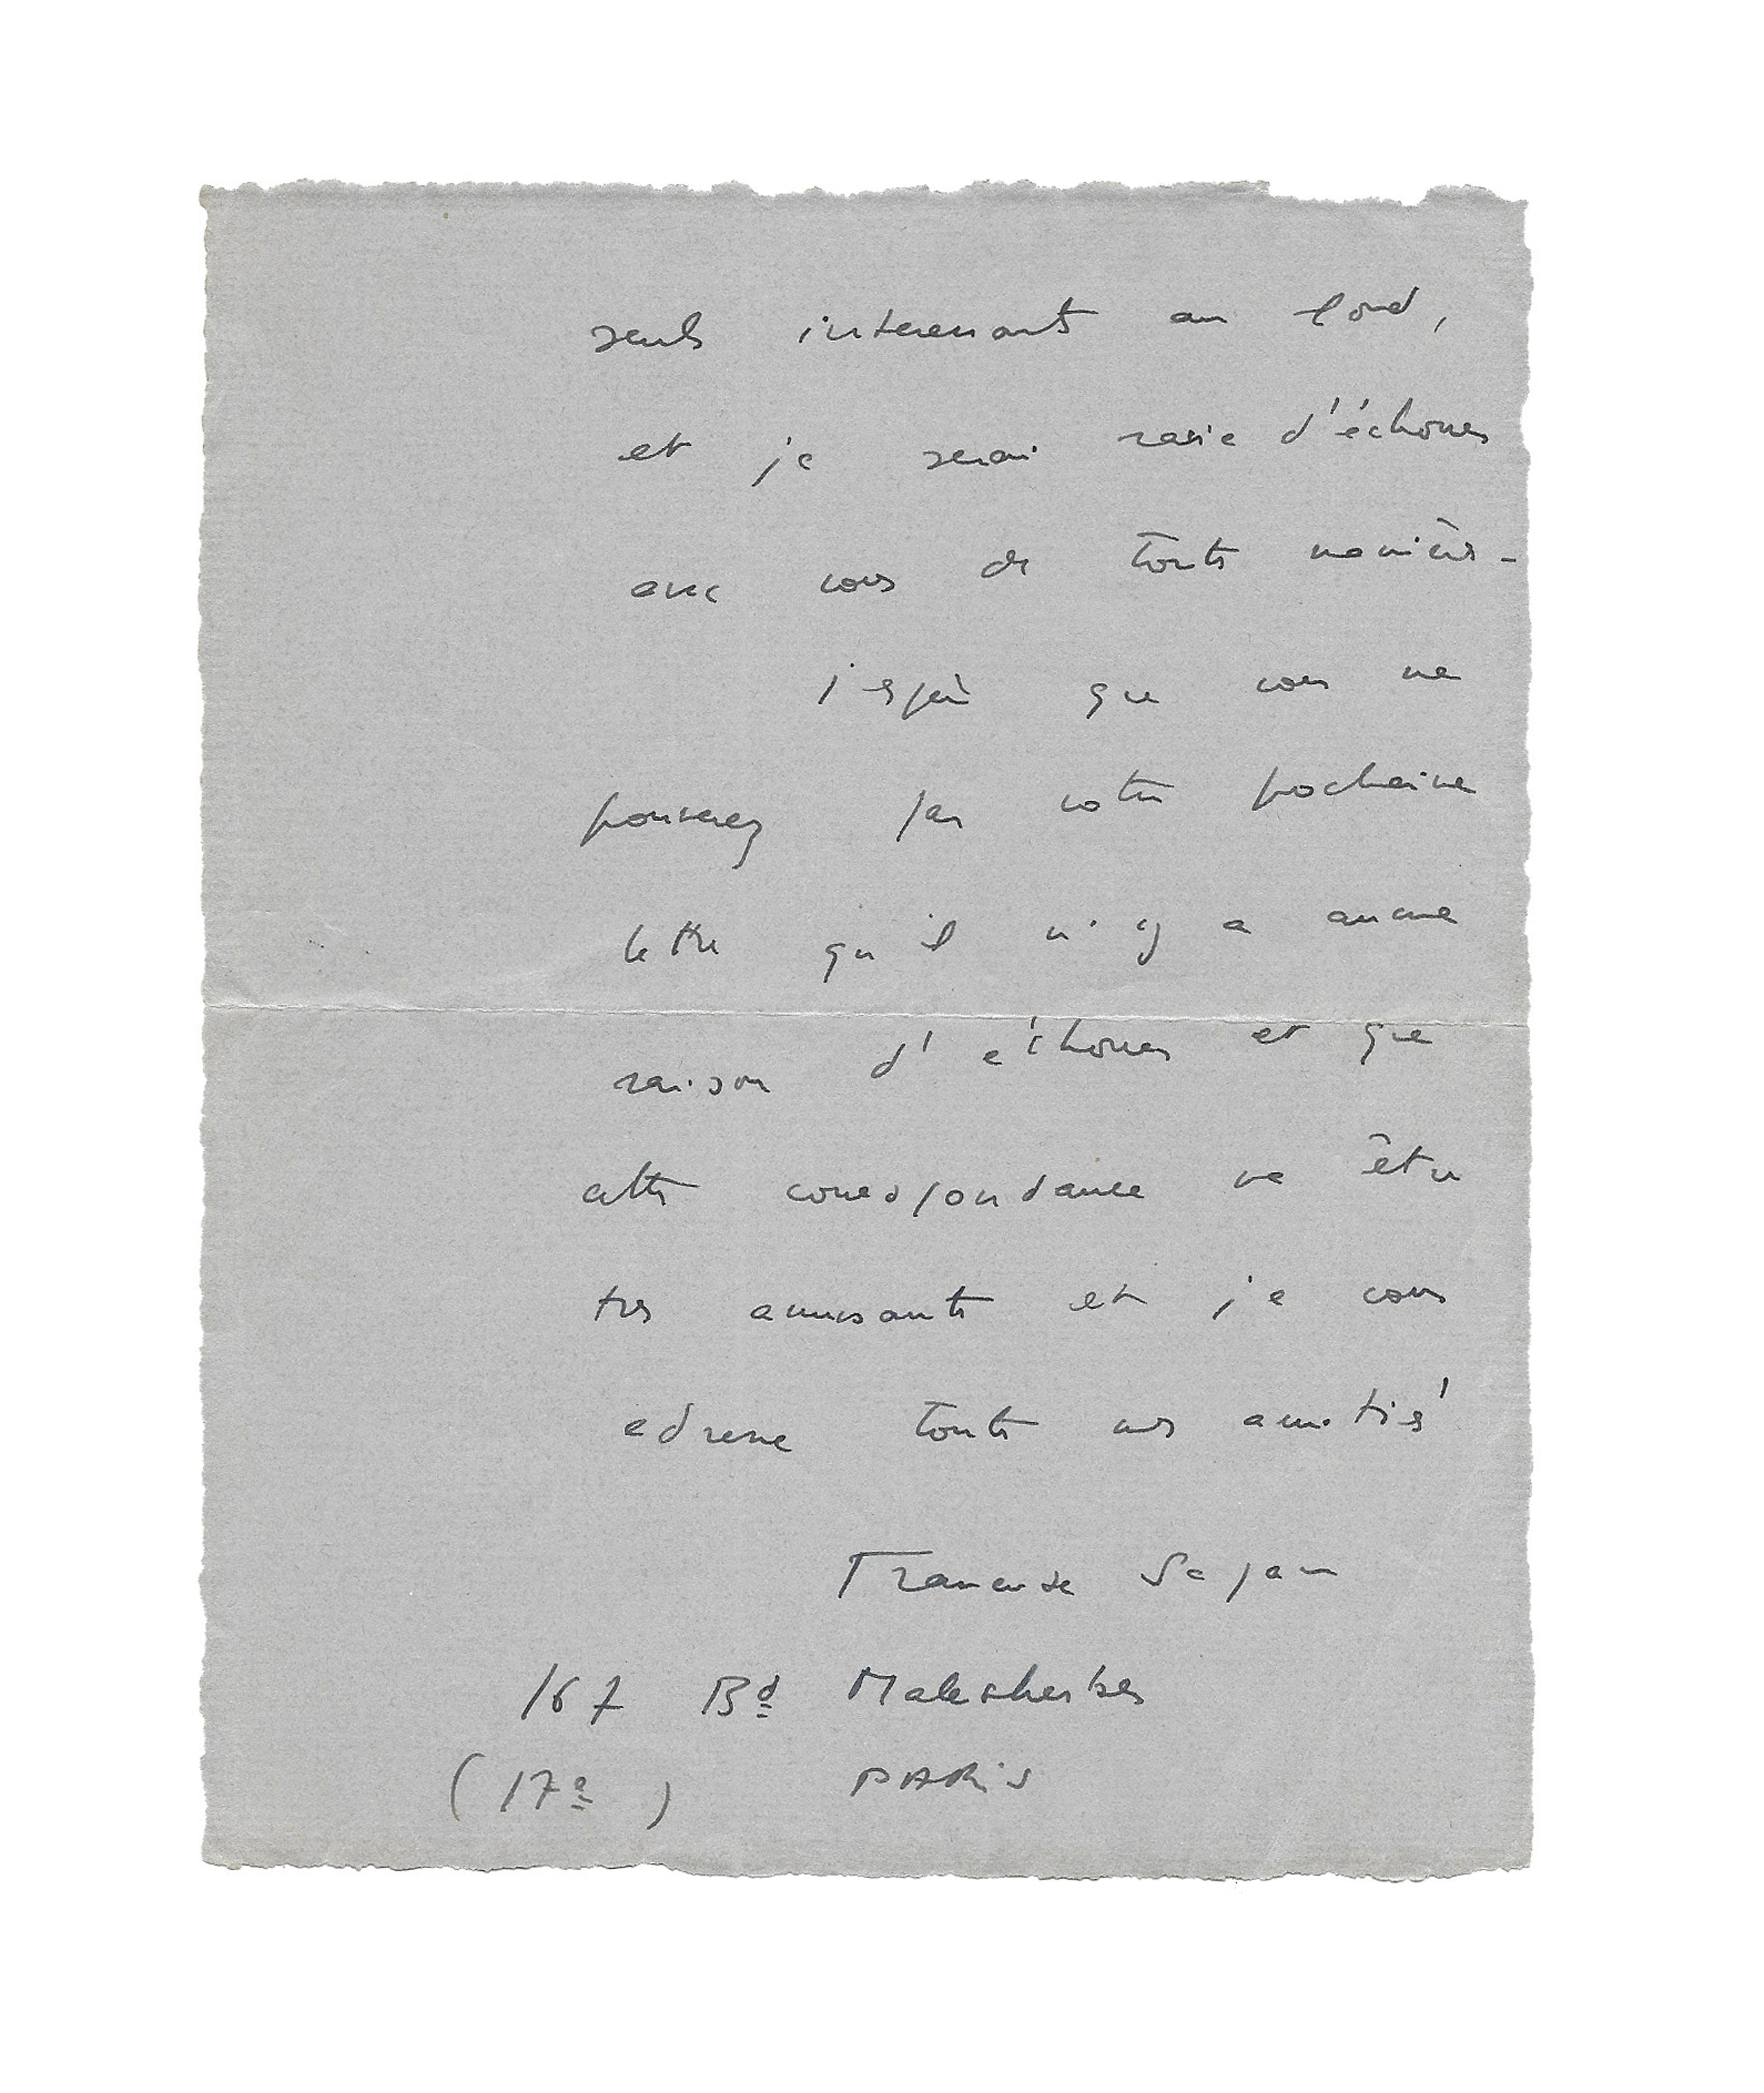 seuls intéressants au fond,
et je serai ravie d'échouer
avec vous de toute manière -
j'espère que vous me
prouverez par votre prochaine
lettre qu'il n'y a aucune
raison d'échouer et que
cette correspondance va être
très amusante et je vous
adresse toutes mes amitiés
Francoise Sagan
167 Bd Malesherbes
(17e) PARIS